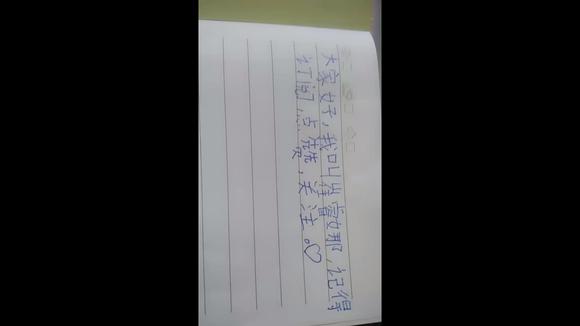 大家好，我叫崔那，记得
订阅，点赞，关注。♡